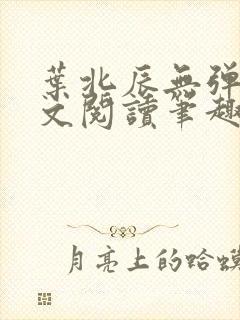 葉北辰無弹
文閱讀筆趣
月亮上的蛤蟆